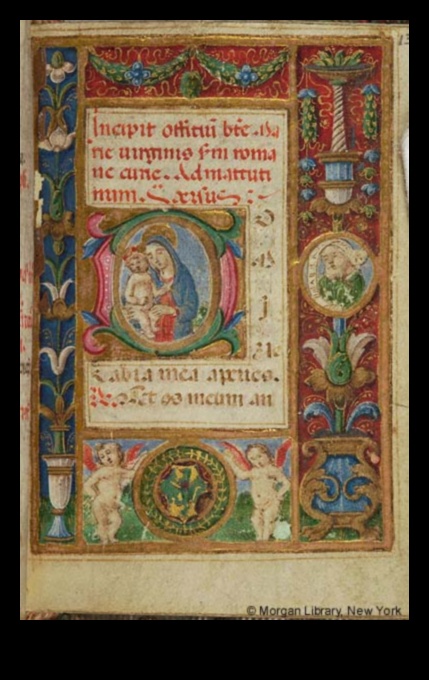 Incipit offitiu bte Ma
rie uirginis sm roma
ne curie. Ad mattuti
num. Uersus:
D
M
I
NE
Labia mea aperies.
R. Et os meum an
© Morgan Library, New York